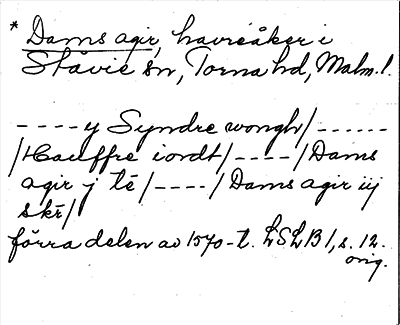 * Dams agir, havreåker i
Ståvie sn, Torna hd, Malm.l.
----y Syndre wongh/------
/Hauffre iordt/----/Dams
agir j tē/----/Dams agir iij
skr̄/
förra delen av 1570-t. LSLB 1, s. 12.
orig.